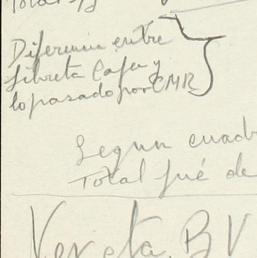 Total
Diferencia entre
libreta Cafe y
lo pasado por CMR
Segun cuadr
Total fué de
Ver eta BV